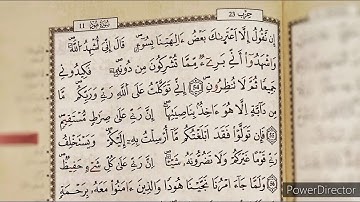 حزب 23
سورة هود 11
إِن نَّقُولُ إِلَّا ٱعْتَرَىٰكَ بَعْضُ ءَالِهَتِنَا بِسُوٓءٍ ۗ قَالَ إِنِّىٓ أُشْهِدُ ٱللَّهَ
وَٱشْهَدُوٓا۟ أَنِّى بَرِىٓءٌ مِّمَّا تُشْرِكُونَ مِن دُونِهِۦ ۖ فَكِيدُونِى
جَمِيعًا ثُمَّ لَا تُنظِرُونِ إِنِّى تَوَكَّلْتُ عَلَى ٱللَّهِ رَبِّى وَرَبِّكُم ۚ مَّا
مِن دَآبَّةٍ إِلَّا هُوَ ءَاخِذٌۢ بِنَاصِيَتِهَآ ۚ إِنَّ رَبِّى عَلَىٰ صِرَٰطٍ مُّسْتَقِيمٍ
فَإِن تَوَلَّوْا۟ فَقَدْ أَبْلَغْتُكُم مَّآ أُرْسِلْتُ بِهِۦٓ إِلَيْكُمْ ۚ وَيَسْتَخْلِفُ
رَبِّى قَوْمًا غَيْرَكُمْ وَلَا تَضُرُّونَهُۥ شَيْـًٔا ۚ إِنَّ رَبِّى عَلَىٰ كُلِّ شَىْءٍ حَفِيظٌ
وَلَمَّا جَآءَ أَمْرُنَا نَجَّيْنَا هُودًا وَٱلَّذِينَ ءَامَنُوا۟ مَعَهُۥ بِرَحْمَةٍ
PowerDirector